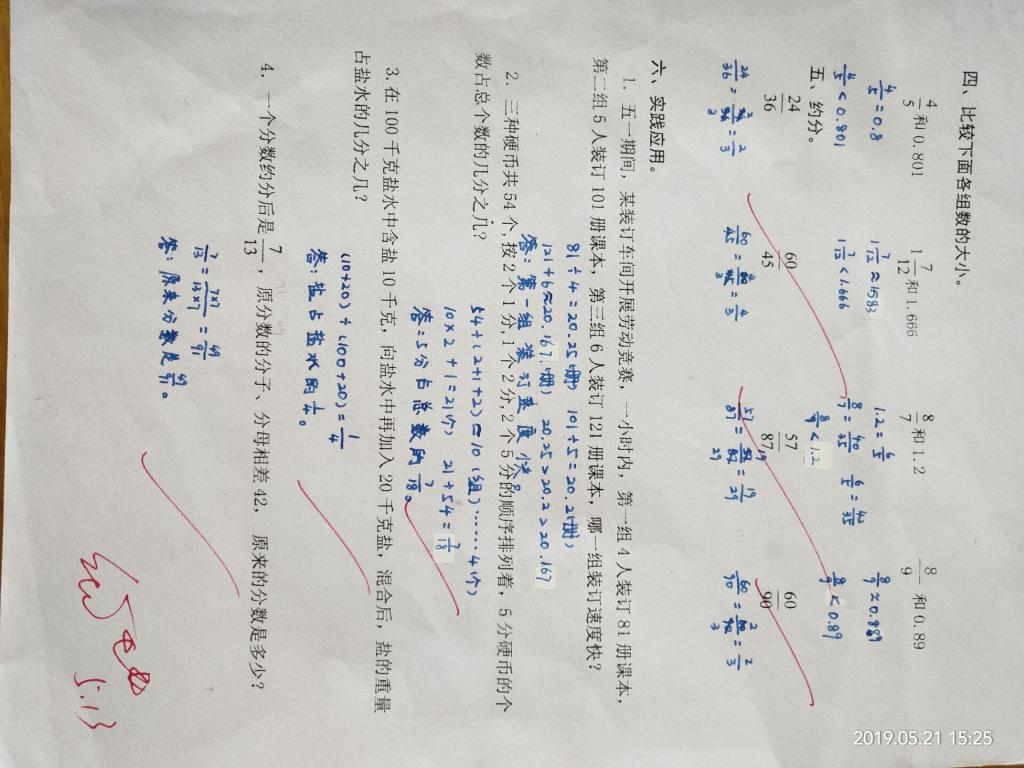 四、比较下面各组数的大小。
4/5 和 0.801  1 7/12 和 1.666  8/7 和 1.2  8/9 和 0.89
4/5 = 0.8  1 7/12 ≈ 1.583  1.2 = 6/5  8/9 ≈ 0.889
8/7 = 40/35  6/5 = 42/35
4/5 < 0.801  1 7/12 < 1.666  8/7 < 1.2  8/9 < 0.89
五、约分。
24/36  60/45  57/87  60/90
24/36 = 24/36 = 2/3  60/45 = 60/45 = 4/3  57/87 = 57/87 = 19/29  60/90 = 60/90 = 2/3
六、实践应用。
1. 五一期间，某装订车间开展劳动竞赛，一小时内，第一组 4 人装订 81 册课本，
第二组 5 人装订 101 册课本，第三组 6 人装订 121 册课本，哪一组装订速度快？
81÷4=20.25(册) 101÷5=20.2(册)
121÷6≈20.167(册) 20.25>20.2>20.167
答：第一组装订速度快。
2. 三种硬币共 54 个，按 2 个 1 分，1 个 2 分，2 个 5 分的顺序排列着，5 分硬币的个
数占总个数的几分之几？
54÷(2+1+2)=10(组)……4(个)
10×2+1=21(个) 21÷54=7/18
答：5分占总数的7/18。
3. 在 100 千克盐水中含盐 10 千克，向盐水中再加入 20 千克盐，混合后，盐的重量
占盐水的几分之几？
(10+20)÷(100+20)=1/4
答：盐占盐水的1/4。
4. 一个分数约分后是 7/13，原分数的分子、分母相差 42，原来的分数是多少？
7/13 = 7×7/13×7 = 49/91
答：原来分数是49/91。
5.13
2019.05.21 15:25